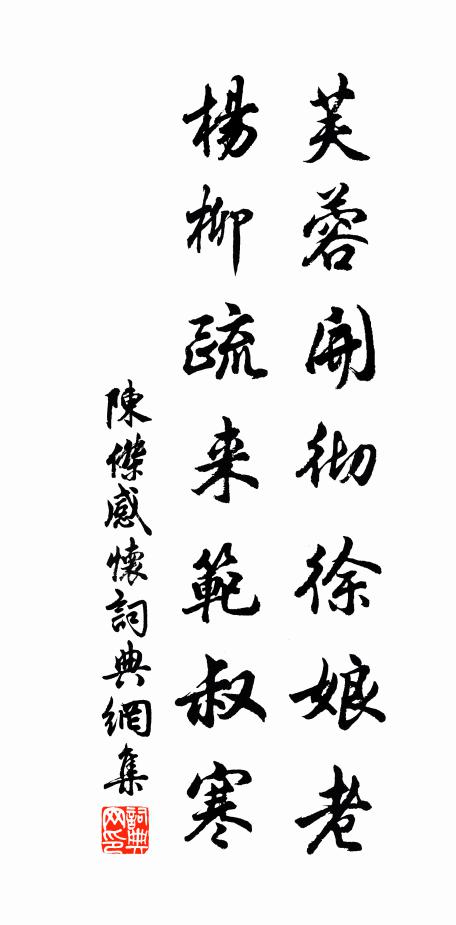 芙蓉開彻徐娘老
楊柳疏来範叔寒
陳傑感懷詞典網集
詞典网印